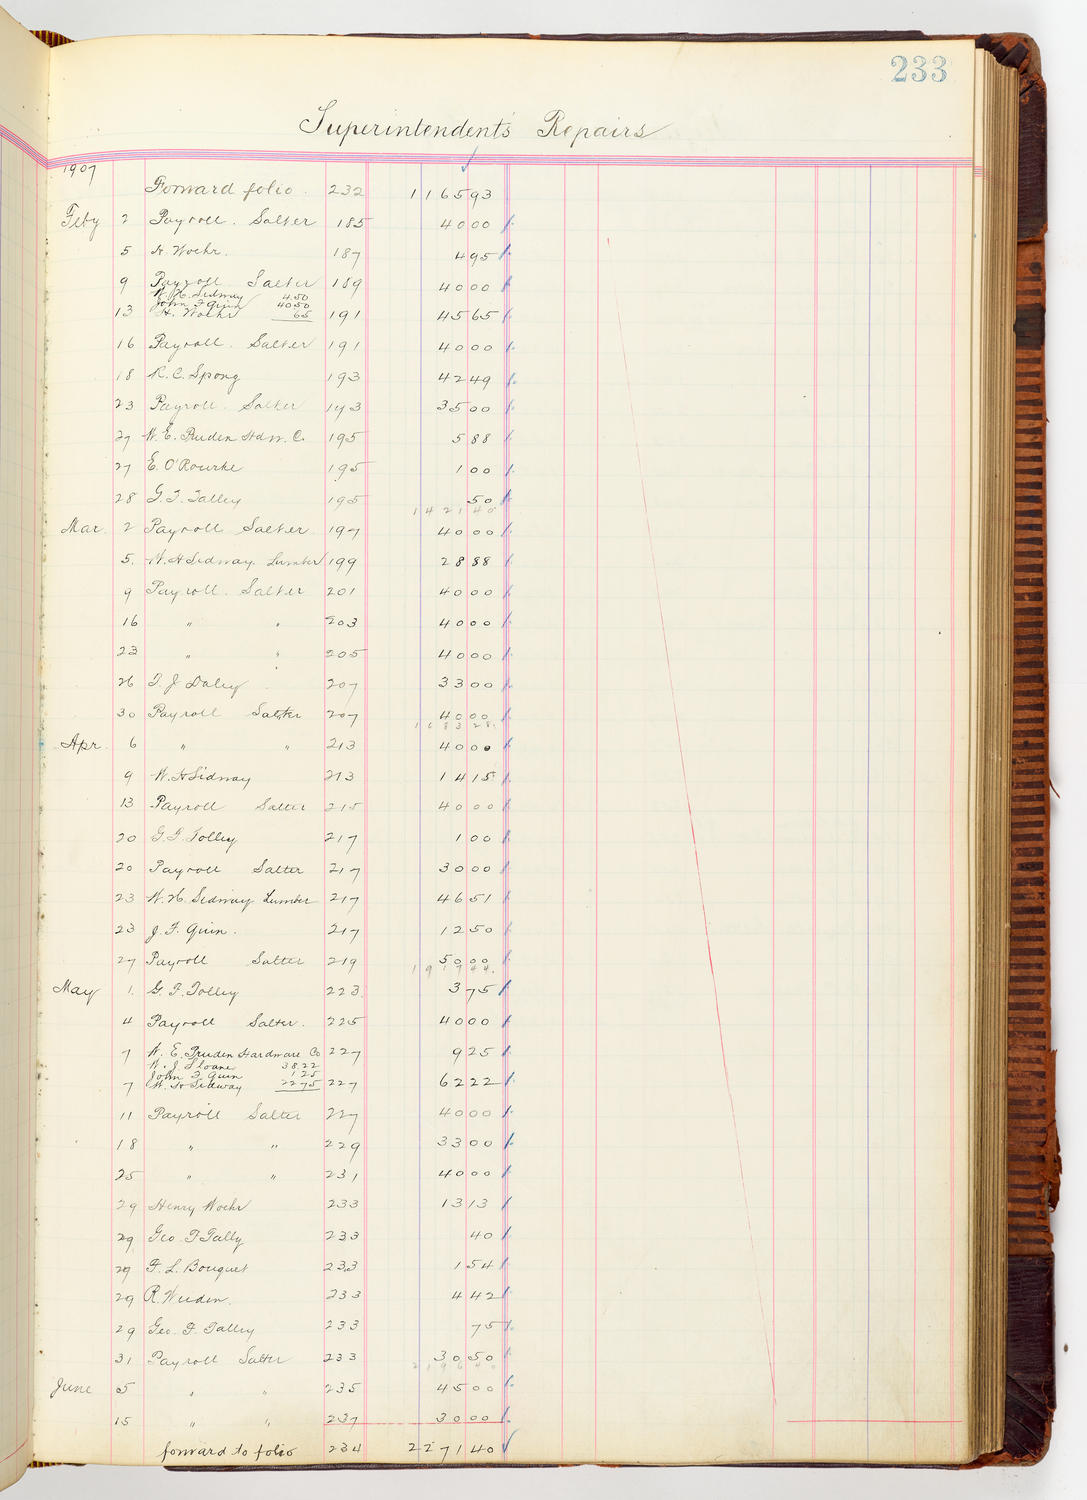 233
Superintendent's Repairs
1907
Forward folio. 232 1165 93
Feby 2 Payroll. Salter 185 40 00
5 H. Woehr. 187 4 95
9 Payroll Salter 189 40 00
W. H. Sidway 4.50
John F Quin 40 50
13 H. Woehr 65 191 45 65
16 Payroll. Salter 191 40 00
18 R. C. Spong 193 42 49
23 Payroll. Salter 193 35 00
27 W. E. Pruden Hdw. C. 195 5 88
27 E. O'Rourke 195 1 00
28 G. F. Talley 195 50
1421 40
Mar. 2 Payroll Salter 197 40 00
5. W. H Sidway Lumber 199 28 88
9 Payroll. Salter 201 40 00
16 " " 203 40 00
23 " " 205 40 00
26 T. J Daley 207 33 00
30 Payroll Salter 207 40 00
1683 28
Apr. 6 " " 213 40 00
9 W. H Sidway 213 14 15
13 Payroll Salter 215 40 00
20 G. F. Tolley 217 1 00
20 Payroll Salter 217 30 00
23 W. H. Sidway Lumber 217 46 51
23 J. F. Quin. 217 12 50
27 Payroll Salter 219 50 00
1917 44
May 1. G. F. Tolley 223 3 75
4 Payroll Salter. 225 40 00
7 W. E. Pruden Hardware Co 227 9 25
W. J. Sloane 38.22
John F Quin 1 25
7 W. H Sidway 22 75 227 62 22
11 Payroll Salter 227 40 00
18 " " 229 33 00
25 " " 231 40 00
29 Henry Woehr 233 13 13
29 Geo F Tally 233 40
29 F. L. Bouquet 233 1 54
29 R. Weeden. 233 4 42
29 Geo. F. Talley 233 75
31 Payroll Salter 233 30 50
2196 40
June 5 " " 235 45 00
15 " " 237 30 00
forward to folio 234 2271 40